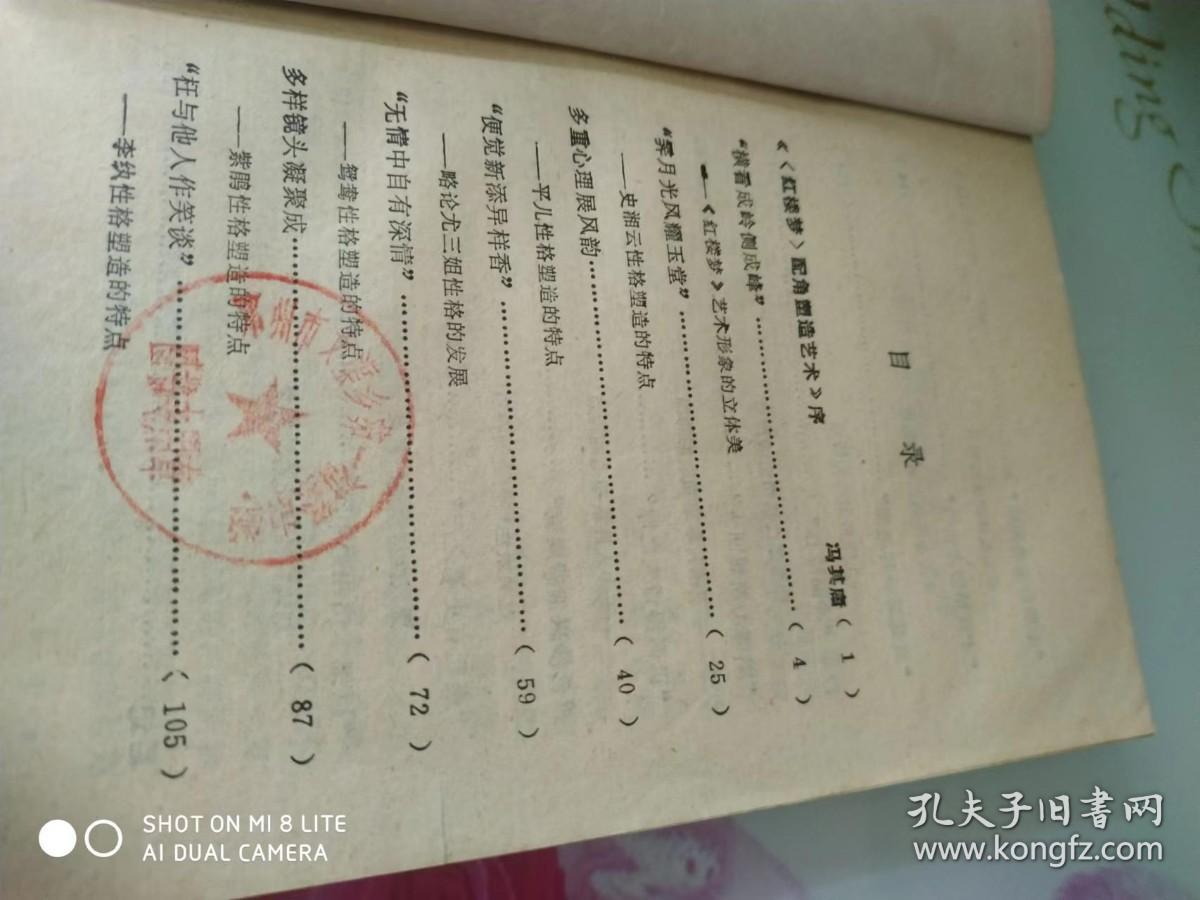 目 录
《〈红楼梦〉配角塑造艺术》序 冯其庸( 1 )
“横看成岭侧成峰”……………………( 4 )
——《红楼梦》艺术形象的立体美
“霁月光风耀玉堂”……………………( 25 )
——史湘云性格塑造的特点
多重心理展风韵……………………( 40 )
——平儿性格塑造的特点
“便觉新添异样香”……………………( 59 )
——略论尤三姐性格的发展
“无情中自有深情”……………………( 72 )
——鸳鸯性格塑造的特点
多样镜头凝聚成……………………( 87 )
——紫鹃性格塑造的特点
“枉与他人作笑谈”……………………( 105 )
——李纨性格塑造的特点
SHOT ON MI 8 LITE
AI DUAL CAMERA
孔夫子旧书网
www.kongfz.com